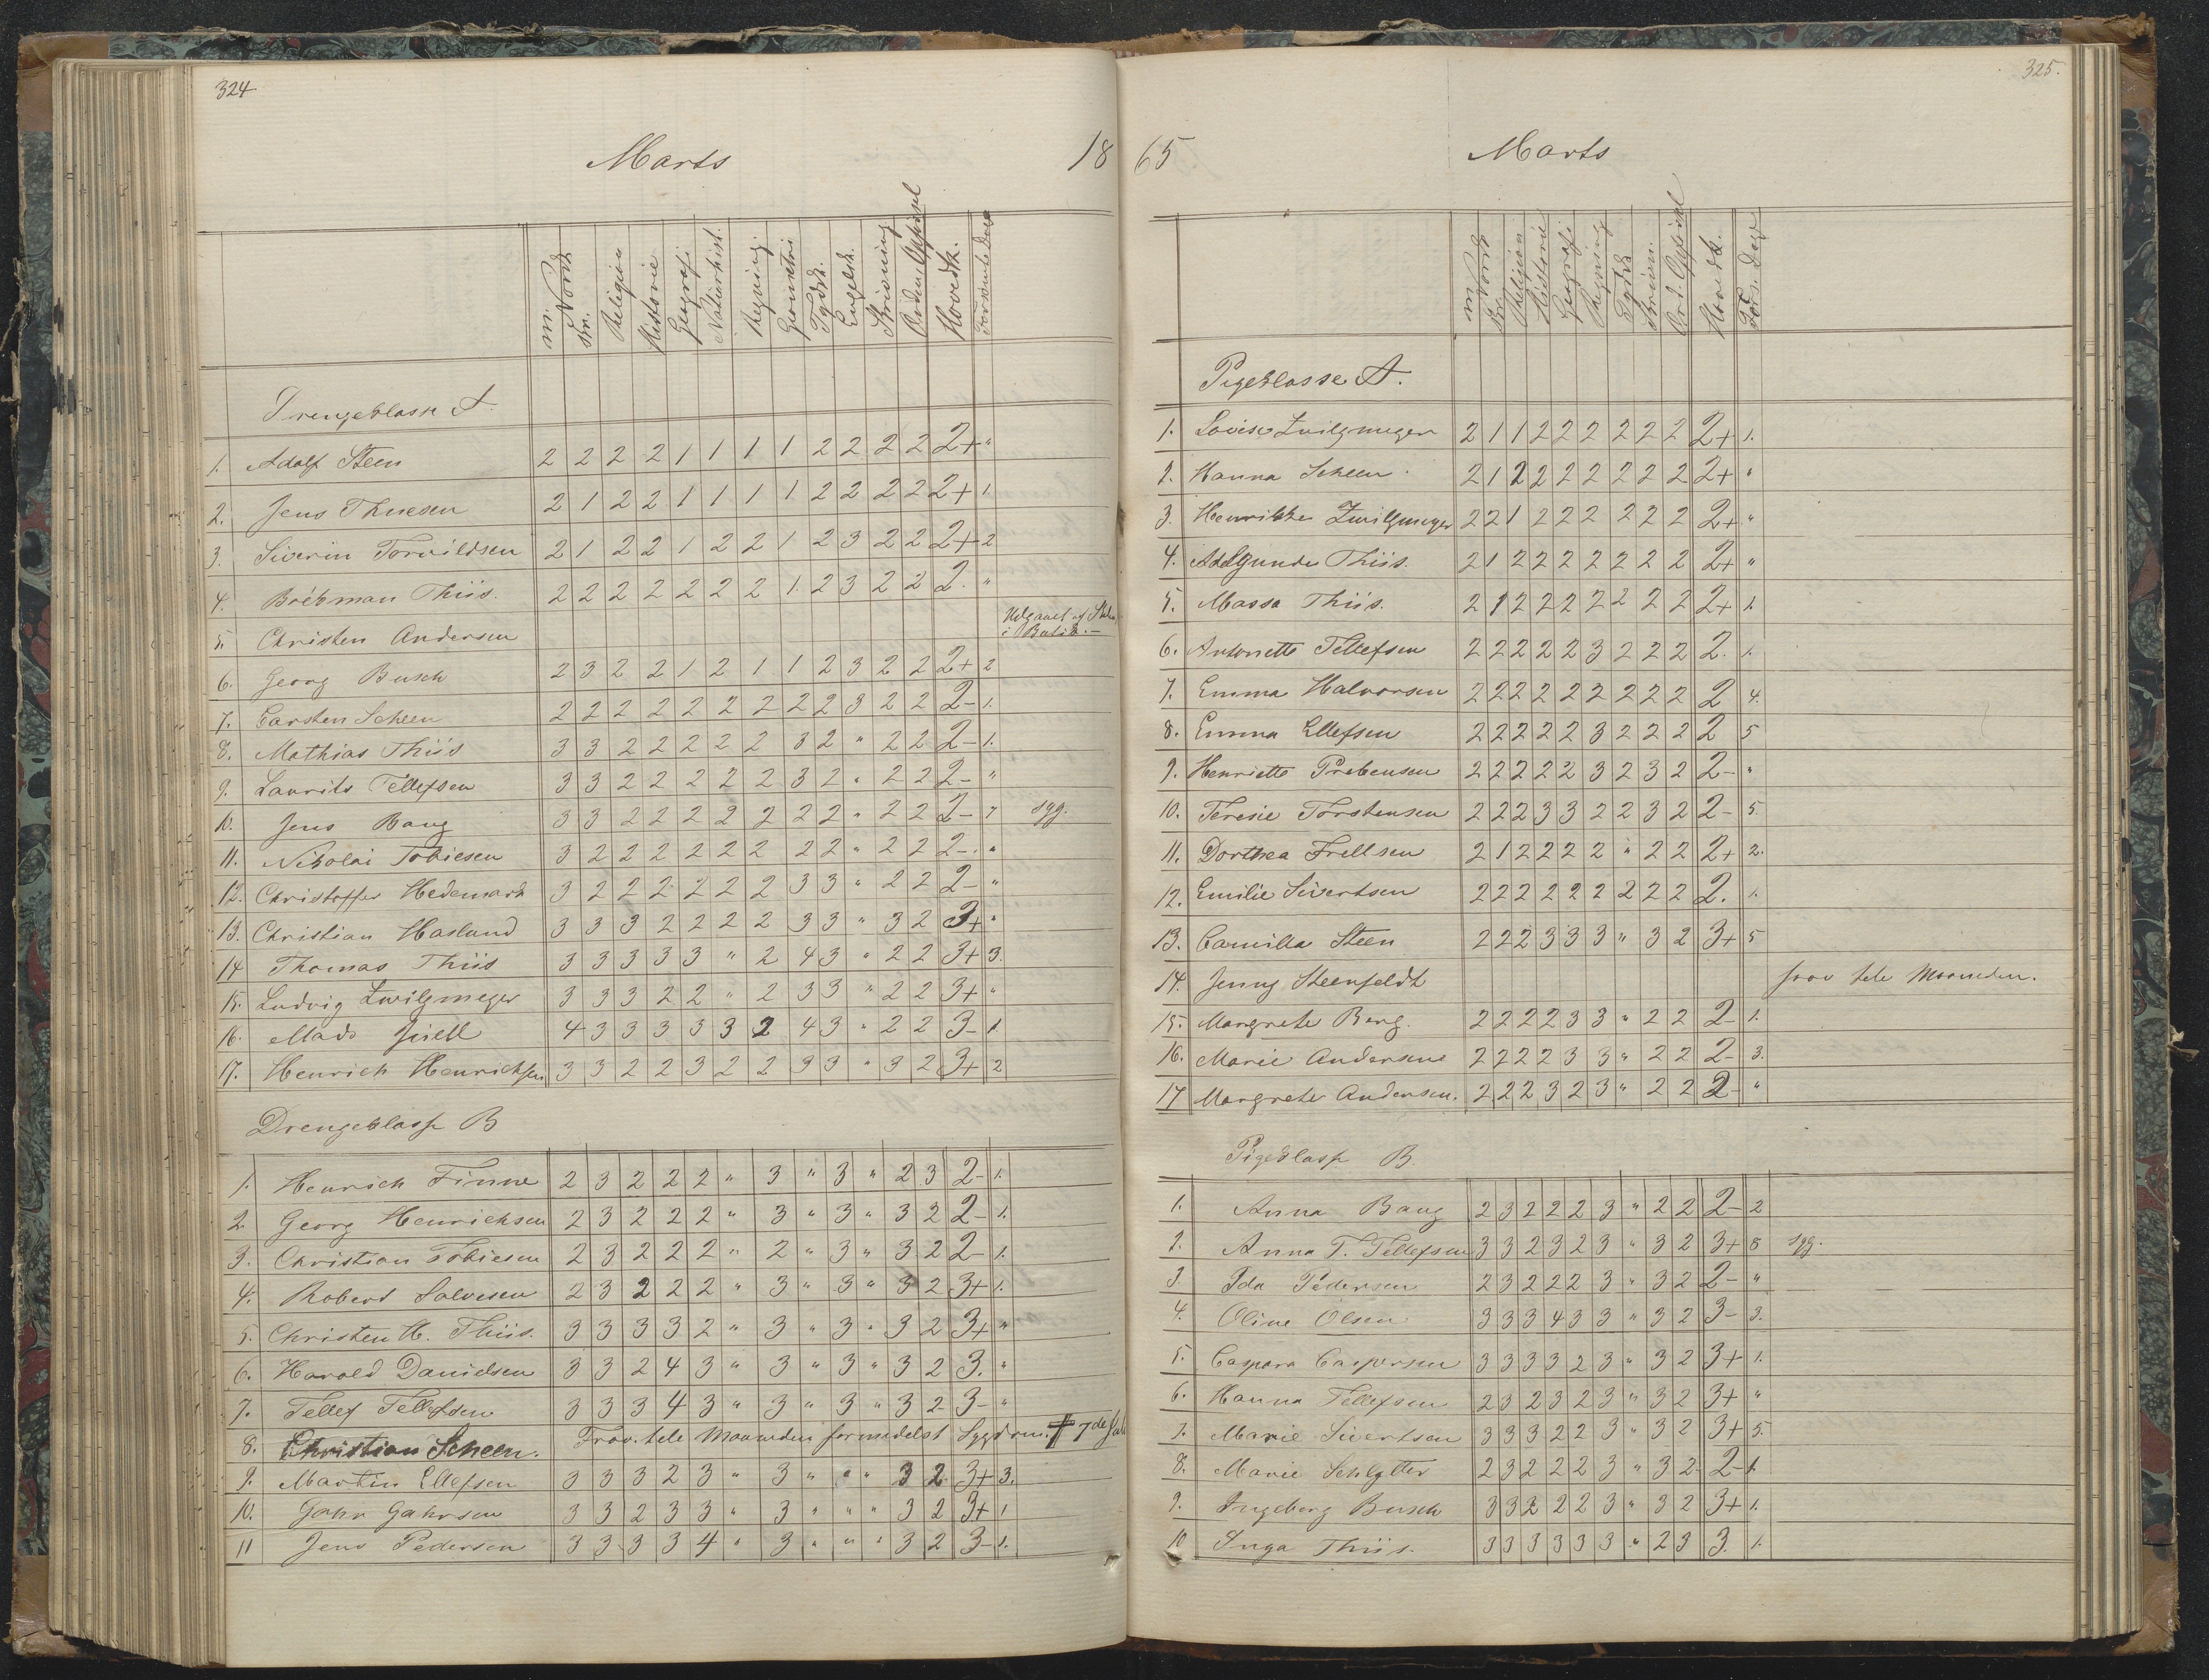 324
Marts 18
m. Norsk sk. Religion Historie Geografi Naturhist. Regning Geometri Tydsk. Engelsk. Skrivning Orden, Opførsel Hovedk. Forsømte Dage
Drengeklasse A.
1. Adolf Steen 2 2 2 2 1 1 1 1 2 2 2 2 2+ "
2. Jens Thuesen 2 1 2 2 1 1 1 1 2 2 2 2 2+ 1.
3. Siverin Torvildsen 2 1 2 2 1 2 2 1 2 3 2 2 2+ 2
4. Thiis. 2 2 2 2 2 2 2 1. 2 3 2 2 2. "
5. Christen Andersen Udgaaet af Skolen i Butik. —
6. Georg Busch 2 3 2 2 1 2 1 1 2 3 2 2 2+ 2
7. Carsten Scheen 2 2 2 2 2 2 2 2 2 3 2 2 2- 1.
8. Mathias Thiis 3 3 2 2 2 2 2 3 2 " 2 2 2- 1.
9. Laurits Tellefsen 3 3 2 2 2 2 2 3 2 " 2 2 2- "
10. Jens Bang 3 3 2 2 2 2 2 2 2 " 2 2 2- 7 syg.
11. Nikolai Tobiesen 3 2 2 2 2 2 2 2 2 " 2 2 2- "
12. Christoffer Hedemark 3 2 2 2 2 2 2 3 3 " 2 2 2- "
13. Christian Haslund 3 3 3 2 2 2 2 3 3 " 3 2 3+ "
14 Thomas Thiis 3 3 3 3 3 " 2 4 3 " 2 2 3+ 3.
15. Ludvig Zwilgmeyer 3 3 3 2 2 " 2 3 3 " 2 2 3+ "
16. Mads Juell 4 3 3 3 3 3 2 4 3 " 2 2 3- 1.
17. Henrich Henrichsen 3 3 2 2 3 2 2 3 3 " 3 2 3+ 2
Drengeklasse B
1. Henrich Finne 2 3 2 2 2 " 3 " 3 " 2 3 2- 1.
2 Georg Henrichsen 2 3 2 2 2 " 3 " 3 " 3 2 2- 1.
3. Christian Tobiesen 2 3 2 2 2 " 2 " 3 " 3 2 2- 1.
4. Robert Salvesen 2 3 2 2 2 " 3 " 3 " 3 2 3+ 1.
5. Christen H. Thiis. 3 3 3 3 2 " 3 " 3 " 3 2 3+ "
6. Harald Danielsen 3 3 2 4 3 " 3 " 3 " 3 2 3. "
7. Tellef Tellefsen 3 3 3 4 3 " 3 " 3 " 3 2 3- "
8. Christian Scheen. Frav. hele Maaneden formedelst Sygdom. † 7de
9. Martin Ellefsen 3 3 3 2 3 " 3 " " " 3 2 3+ 3.
10. Gahr Gahrsen 3 3 2 3 3 " 3 " " " 3 2 3+ 1
11 Jens Pedersen 3 3 3 3 4 " 3 " " " 3 2 3- 1.
325.
65 Marts
m. Norsk sk. Religion Historie Geografi Regning Tydsk Skrivn. Ord. Opførsel Hovedk. Fors. Dage
Pigeklasse A.
1. Lovise Zwilgmeyer 2 1 1 2 2 2 2 2 2 2+ 1.
2. Hanna Scheen 2 1 2 2 2 2 2 2 2 2+ "
3. Henrikke Zwilgmeyer 2 2 1 2 2 2 2 2 2 2+ "
4. Adelgunde Thiis. 2 1 2 2 2 2 2 2 2 2+ "
5. Massa Thiis. 2 1 2 2 2 2 2 2 2 2+ 1.
6. Antonette Tellefsen 2 2 2 2 2 3 2 2 2 2. 1.
7. Emma Halvorsen 2 2 2 2 2 2 2 2 2 2 4.
8. Emma Ellefsen 2 2 2 2 2 3 2 2 2 2 5
9. Henriette Prebensen 2 2 2 2 2 3 2 3 2 2- "
10. Teresie Torstensen 2 2 2 3 3 2 2 3 2 2- 5
11. Dorthea Frellsen 2 1 2 2 2 2 " 2 2 2+ 2.
12. Emilie Sivertsen 2 2 2 2 2 2 2 2 2 2. 1.
13. Camilla Steen 2 2 2 3 3 3 " 3 2 3+ 5
14. Jenny Steenfeldt frav hele Maaneden.
15. Margrete Berg. 2 2 2 2 3 3 " 2 2 2- 1.
16. Marie Andersen 2 2 2 2 3 3 " 2 2 2- 3.
17 Margrete Andersen. 2 2 2 3 2 3 " 2 2 2- "
Pigeklasse B.
1. Anna Bang 2 3 2 2 2 3 " 2 2 2- 2
2. Anna T. Tellefsen 3 3 2 3 2 3 " 3 2 3+ 8 syg.
3. Ida Pedersen 2 3 2 2 2 3 " 3 2 2- "
4. Oline Olsen 3 3 3 4 3 3 " 3 2 3- 3.
5. Caspara Caspersen 3 3 3 3 2 3 " 3 2 3+ 1.
6. Hanna Tellefsen 2 3 2 3 2 3 " 3 2 3+ "
7. Marie Sivertsen 3 3 3 2 2 3 " 3 2 3+ 5.
8. Marie Schlytter 2 3 2 2 2 3 " 3 2 2- 1.
9. Ingeborg Busch 3 3 2 2 2 3 " 3 2 3+ 1.
10 Inga Thiis. 3 3 3 3 3 3 " 2 3 3. 1.